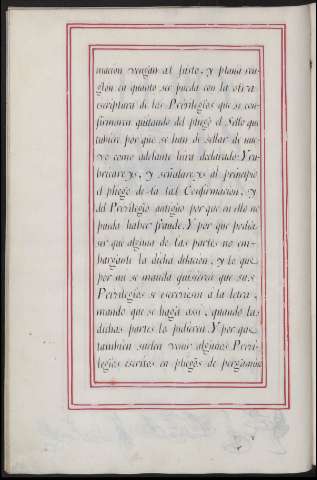 macion vengan al justo, y plana ren-
glon en quanto ser pueda con la otra
escriptura de los Previlegios que se con
firmaren quitando del pliego el Sello que
tubiere por que se han de sellar de nue-
vo como adelante hirá declarado: Y ru-
bricareys, y señalareys al principio
el pliego de la tal Confirmacion, y
del Previlegio antiguo por que en ello no
pueda haber fraude. Y por que podrá
ser que alguna de las partes no em-
bargante la dicha dilacion, y lo que
por mi se manda quisieren que sus
Previlegios se escreviesen a la letra,
mando que se haga assi, quando las
dichas partes lo pidieren. Y por que
tambien suelen venir algunos Previ-
legios escritos en pliegos de pergamino